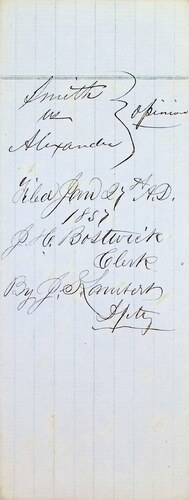 Smith
vs
Alexander } Opinion
Filed Jan 27th A.D.
1857
J. H. Bostwick
Clerk
By J. S. Lambert
Dpty